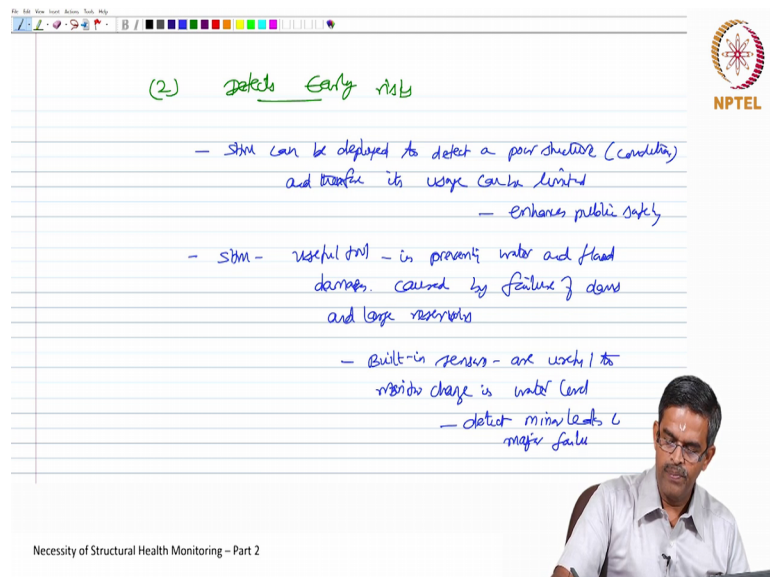 File Edit View Insert Actions Tools Help
B I
NPTEL
(2) Detects Early risks
- SHM can be deployed to detect a poor structure (condition)
and therefore its usage can be limited
- enhances public safety
- SHM - useful tool - in preventing water and flood
damages. caused by failure of dams
and large reservoirs
- Built-in sensors - are useful to
monitor change in water level
- detect minor leaks
major failu
Necessity of Structural Health Monitoring – Part 2